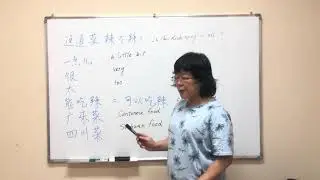 这道菜辣不辣? is this dish spicy or not?
一点儿 a little bit
很 very
太 too
能吃辣 = 可以吃辣
广东菜 Cantonese food
四川菜 food